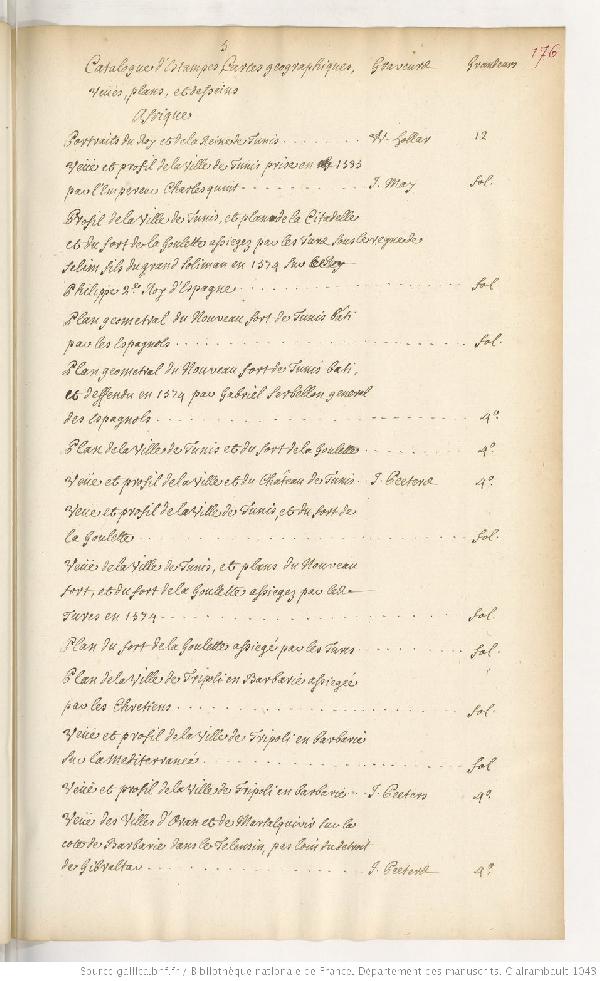 5
176
Catalogue d'Estampes Cartes geographiques, Graveurs Grandeurs
veües, plans, et desseins
Affrique
Portraits du Roy et de la Reine de Tunis W. Hollar 12
Veüe et profil de la Ville de Tunis prise en 1535
par l'Empereur Charlesquint J. May fol.
Profil de la Ville de Tunis, et plan de la Citadelle
et du fort de la Goulette assiegez par les Turcs sous le regne de
Selim fils du grand Soliman en 1574 sur
Philippe 2e. Roy d'Espagne fol
Plan geometral du Nouveau fort de Tunis bâti
par les Espagnols fol.
Plan geometral du Nouveau fort de Tunis bati,
et deffendu en 1574 par Gabriel Serbellon general
des Espagnols 4o.
Plan de la Ville de Tunis et du fort de la Goulette 4o.
Veüe et profil de la Ville et du Château de Tunis J. Peeters 4o.
Veue et profil de la Ville de Tunis, et du fort de
la Goulette fol.
Veüe de la Ville de Tunis, et plans du Nouveau
fort, et du fort de la Goulette assiegez par les
Turcs en 1574 fol.
Plan du fort de la Goulette assiegé par les Turcs fol.
Plan de la Ville de Tripoli en Barbarie assiegée
par les Chretiens fol.
Veüe et profil de la Ville de Tripoli en barbarie
sur la Mediterranée fol
Veüe et profil de la Ville de Tripoli en barbarie J. Peeters 4o.
Veüe des Villes d'Oran et de Marsalquivir sur la
coste de Barbarie dans le Telensin, pas loin du detroit
de Gibraltar J. Peeters 4o.
Source gallica.bnf.fr / Bibliothèque nationale de France. Département des manuscrits. Clairambault 1043